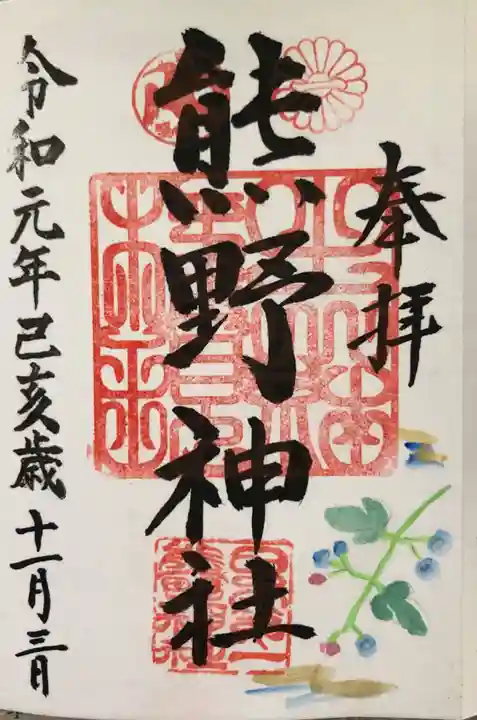 奉拝
熊野神社
令和元年己亥歳十一月三日